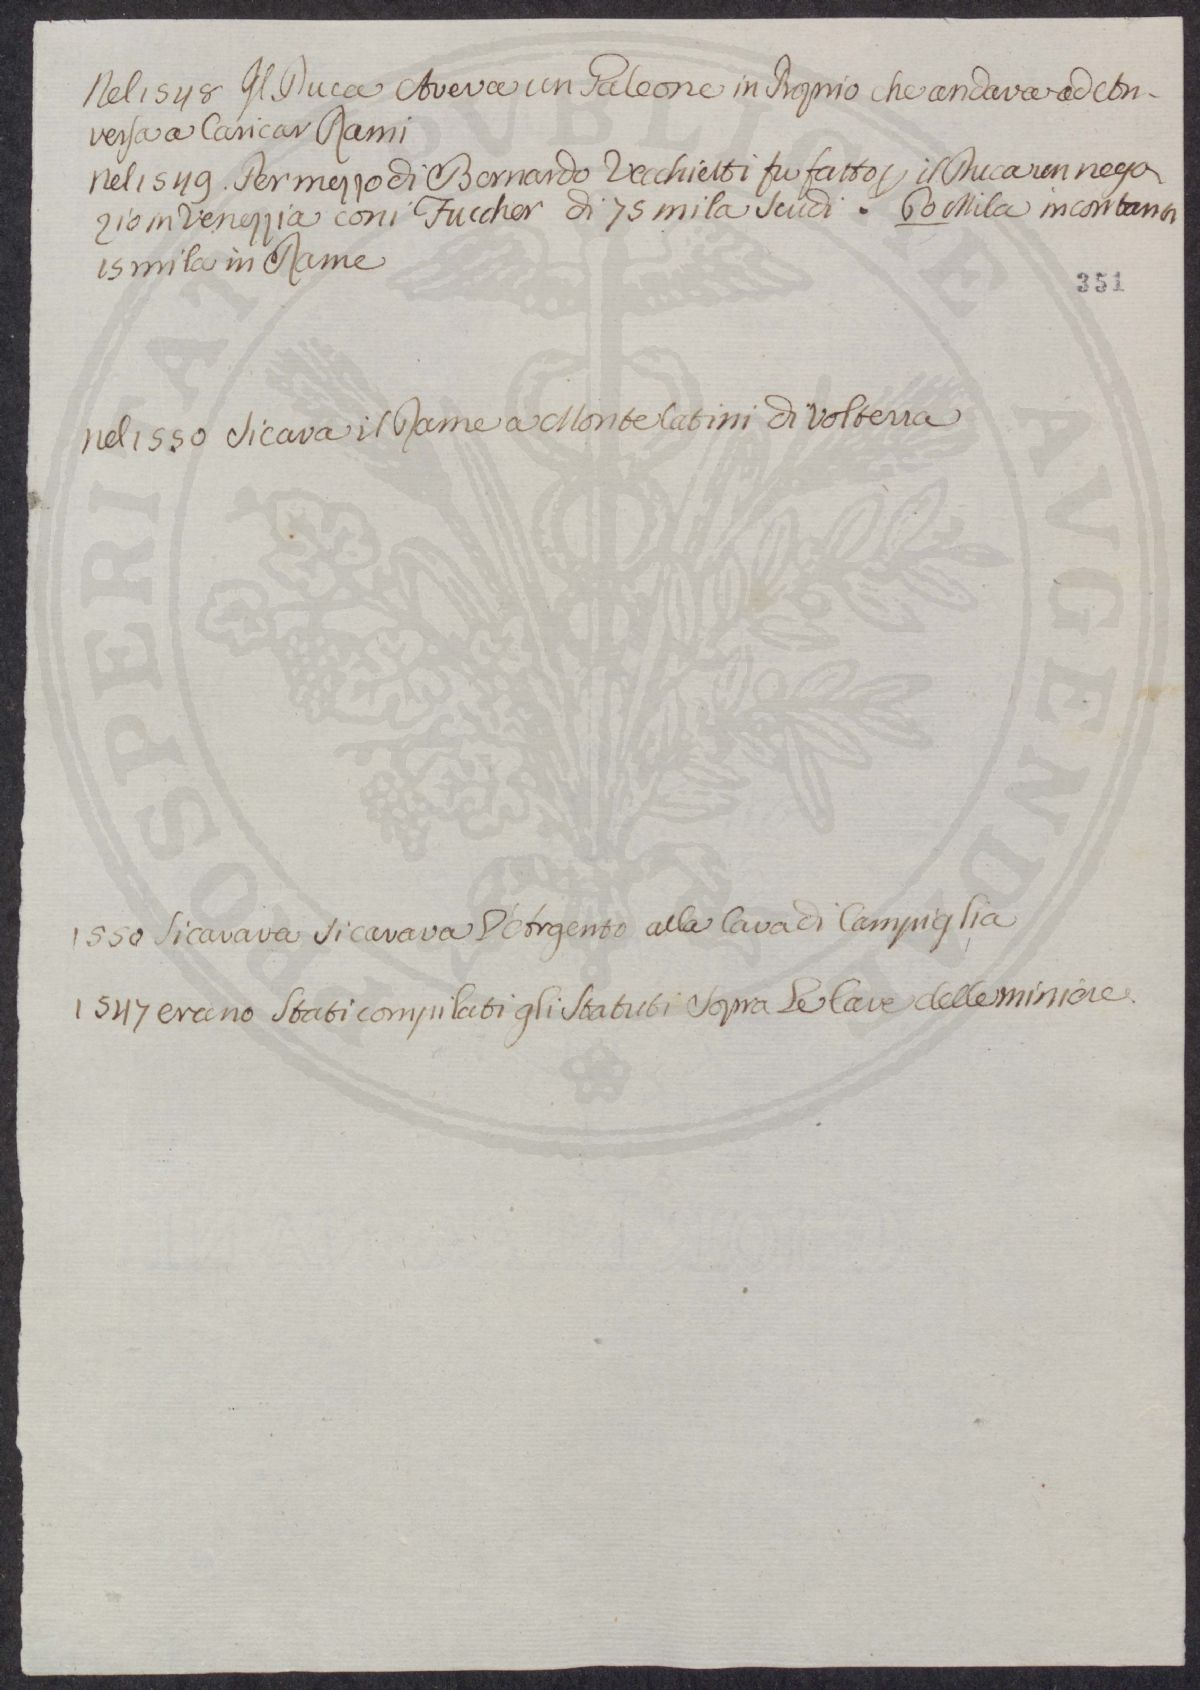 Nel 1548 Il Duca Aveva un Galeone in Proprio che andava ad An-
versa a Caricar Rami
nel 1549. Per mezzo di Bernardo Vecchietti fu fatto p il Duca un nego
zio in Venezzia con i Fuccher di 75 mila Scudi. 60 Mila in contanti
15 mila in Rame
351
nel 1550 Si cava il Rame a Monte Catini di Volterra
1550 Si cavava Si cavava L'Argento alla Cava di Campiglia
1547 erano Stati compilati gli Statuti Sopra Le Cave delle miniere.
PROSPERITATI PVBLICAE AVGENDAE